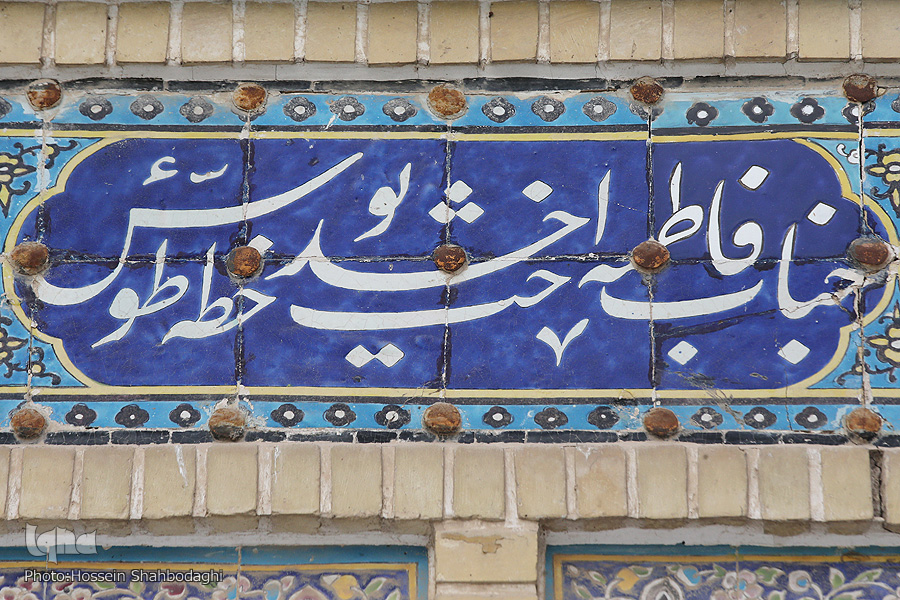 جناب فاطمه اخت خدیو خطه طوس
iqna
Photo:Hossein Shahbodaghi